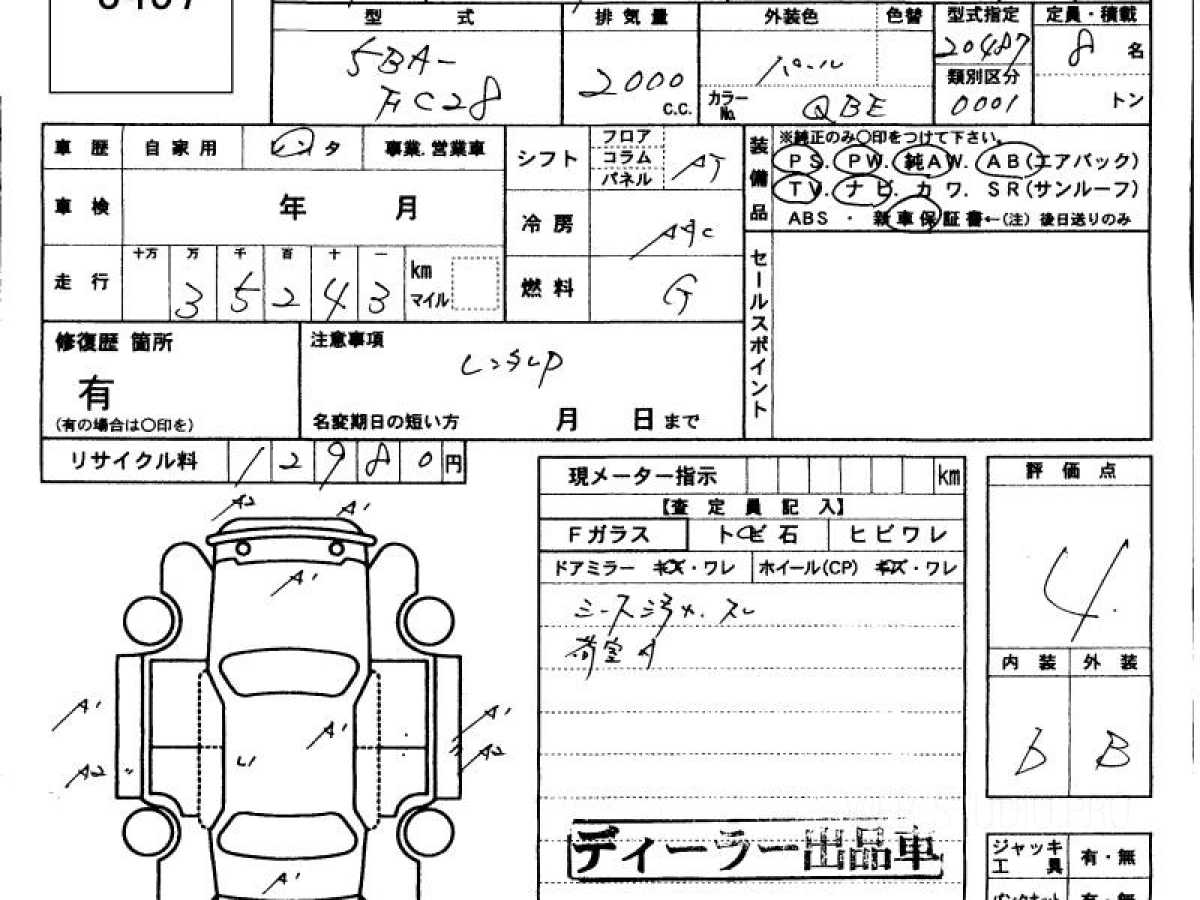 型 式 排気量 外装色 色替 型式指定 定員・積載
5BA-
FC28
2000
C.C.
パール
カラーNo. QBE
20487
類別区分
0001
8 名
トン
車歴 自家用 レンタ 事業.営業車
車検 年 月
走行 十万 万 千 百 十 一
3 5 2 4 3
km
マイル
シフト フロア コラム パネル AT
冷房 AAC
燃料 G
装備品 ※純正のみ○印をつけて下さい。
PS. PW. 純AW. AB(エアバック)
TV. ナビ. カワ. SR(サンルーフ)
ABS ・ 新車保証書←(注) 後日送りのみ
セールスポイント
修復歴 箇所
有
(有の場合は○印を)
注意事項
レンタUP
名変期日の短い方 月 日まで
リサイクル料 1 2 9 8 0 円
現メーター指示 km
【査定員記入】
Fガラス トビ石 ヒビワレ
ドアミラー キズ・ワレ ホイール(CP) キズ・ワレ
シース汚メ.スレ
荷室A
評価点
4.
内装 外装
b B
A2 A1
A1
A1 A1
A1
A2 A2
A1
ディーラー出品車
ジャッキ
工具
有・無